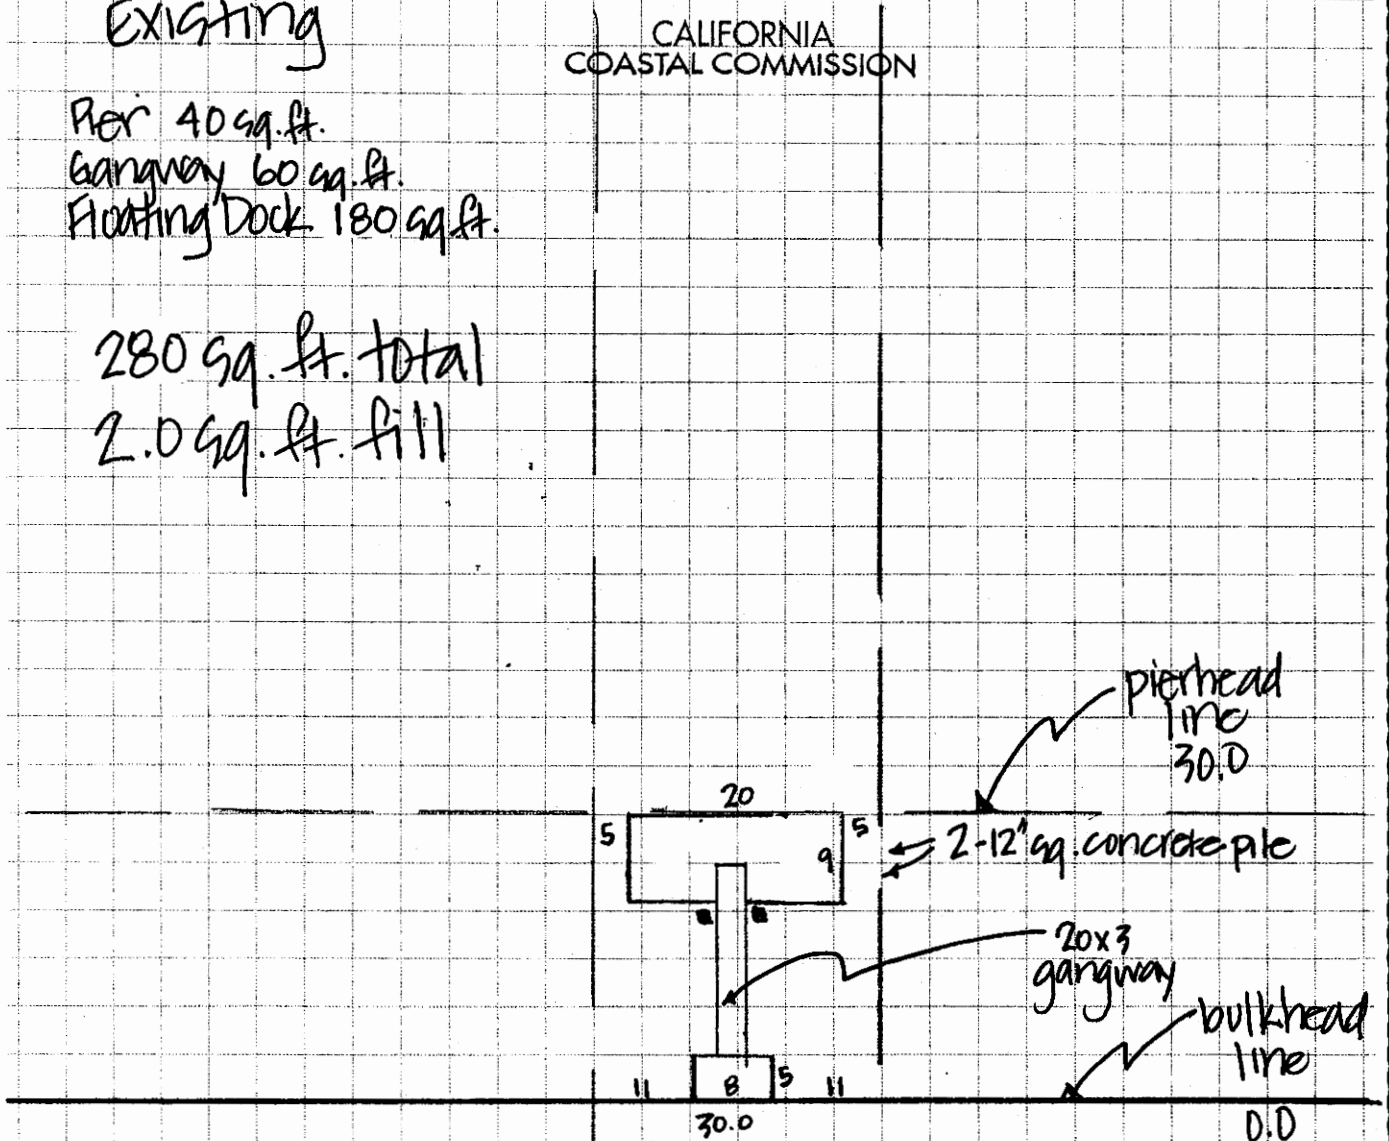 Existing
CALIFORNIA
COASTAL COMMISSION
Pier 40 sq.ft.
Gangway 60 sq.ft.
Floating Dock 180 sq.ft.
280 sq.ft. total
2.0 sq.ft. fill
pierhead
line
30.0
20
5
5
9
2-12" sq. concrete pile
20x3
gangway
bulkhead
line
11
8
5
11
30.0
0.0